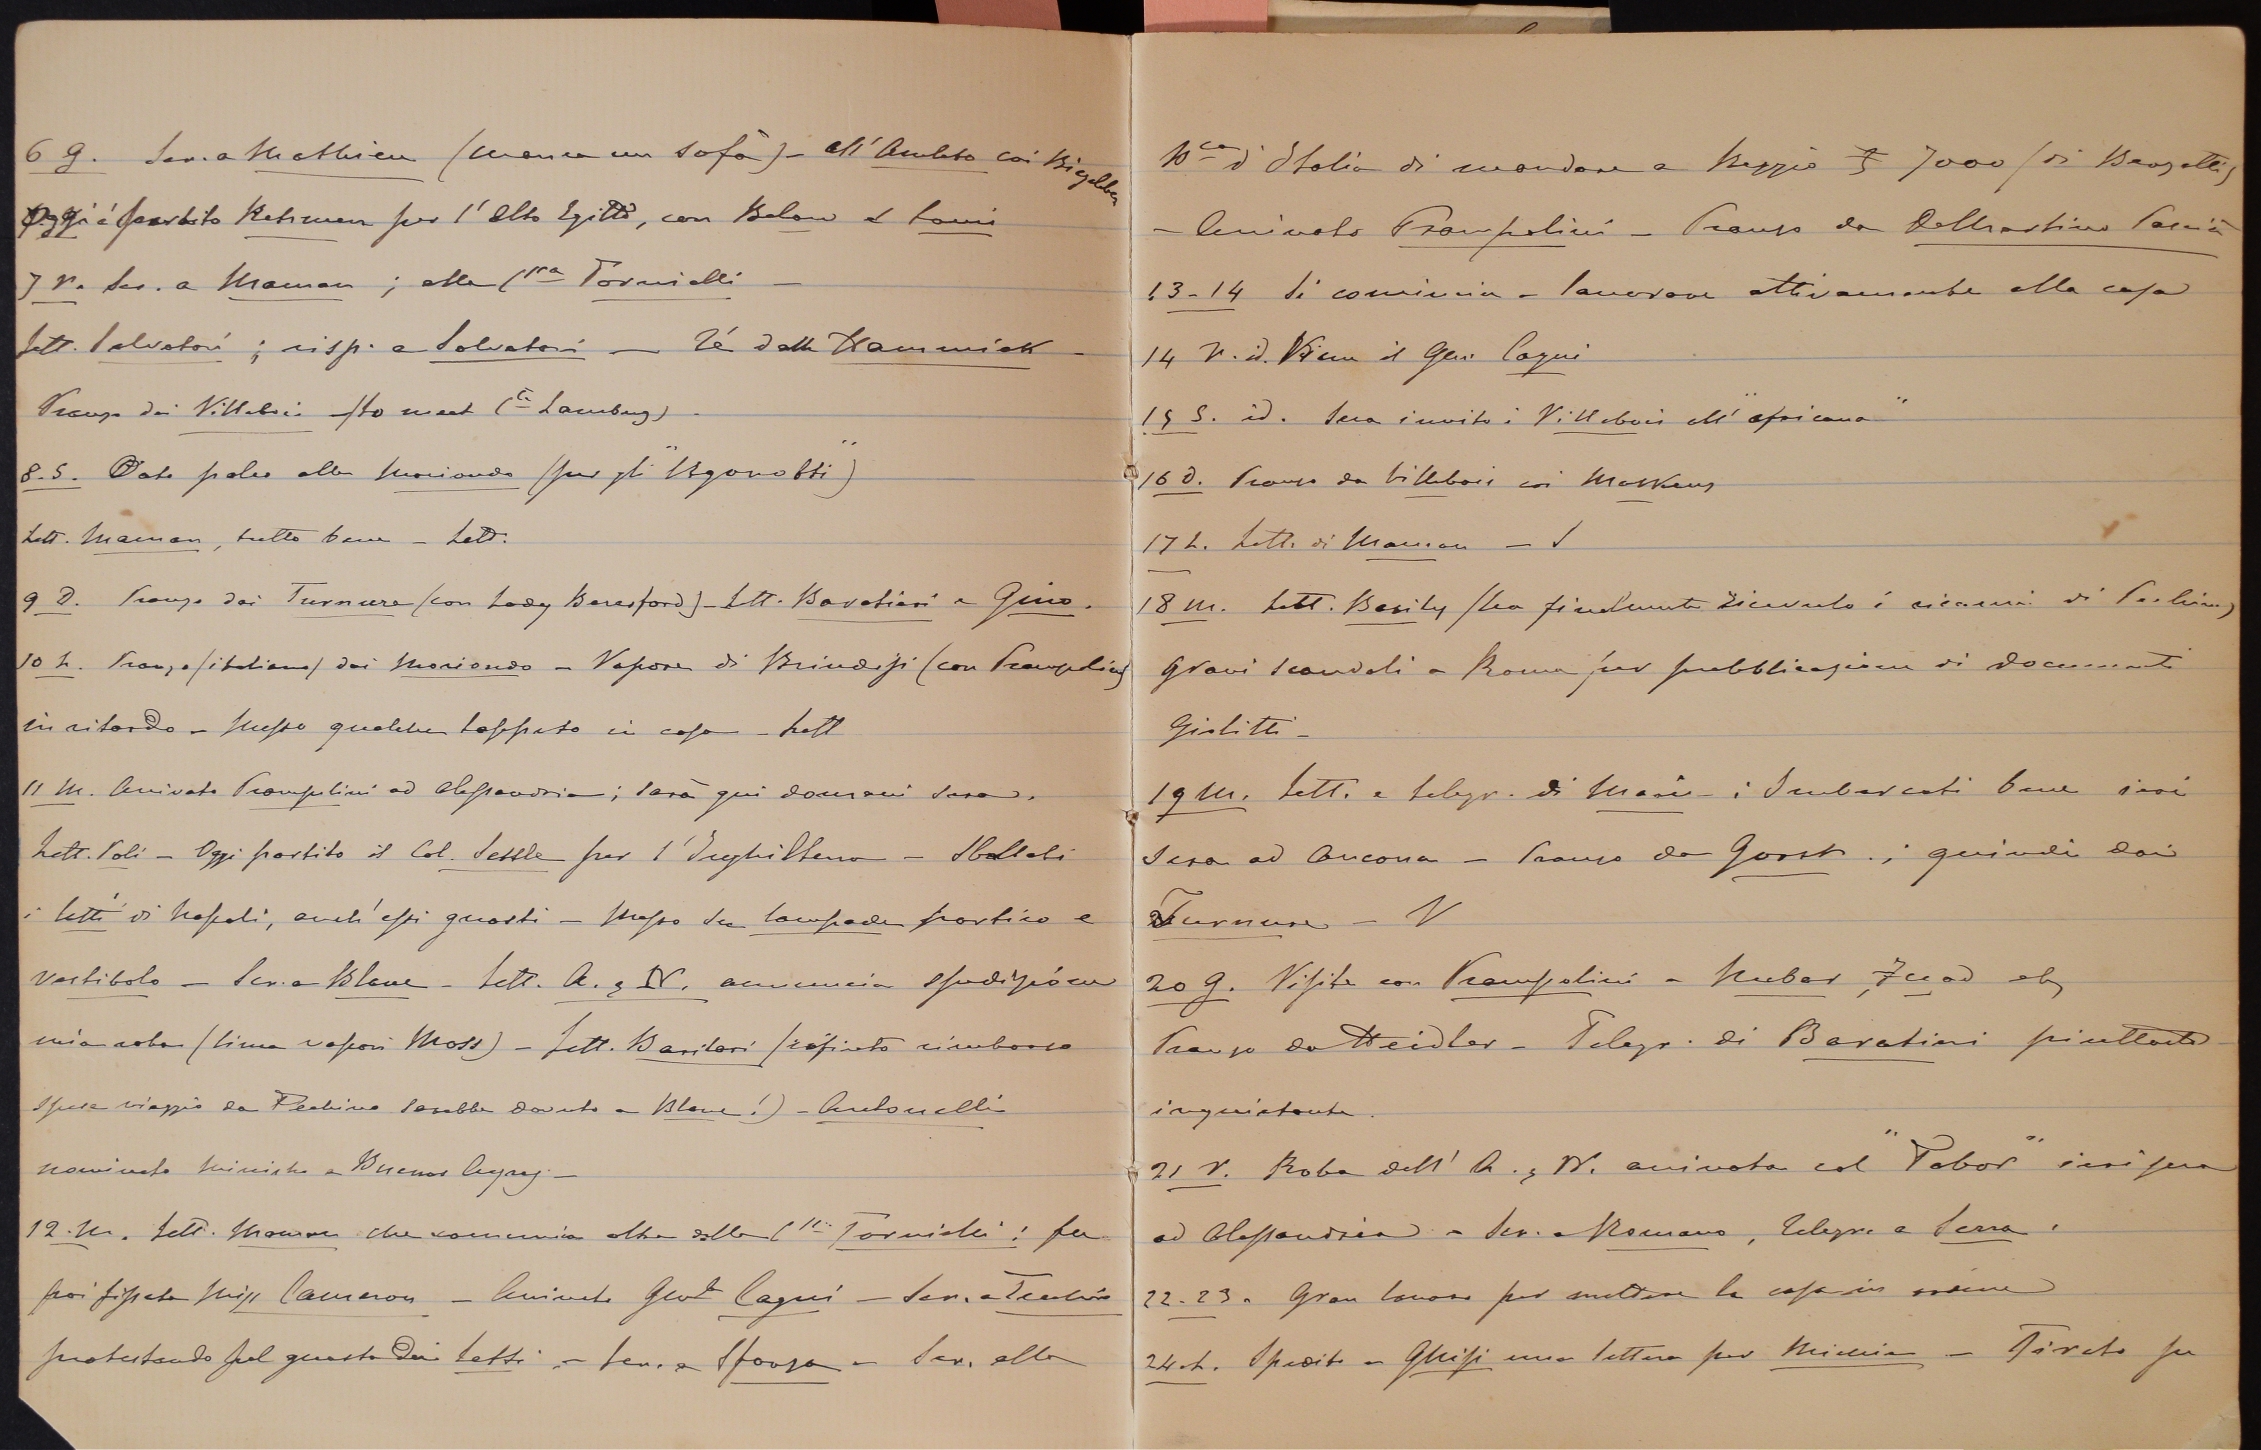 6 G. Scr. a Mathieu (manca un sofà) - All'Amleto coi Bigelben
Oggi è partito Rehman per l'alto Egitto, con Below e Louis
7 V. Scr. a Maman ; alla Cssa Tornielli -
Lett. Salvatori ; risp. a Salvatori - Té dalle Hammick -
Pranzo dai Villebois (to meet Cte Lamburg) -
8. S. Dato palco alla Moriondo (per gli "Ugonotti")
Lett. Maman, tutto bene - Lett.
9 D. Pranzo dai Turnure (con Lady Beresford) - Lett. Baratieri e Gino.
10 L. Pranzo (italiano) dai Moriondo - Vapore di Brindisi (con Prampolini)
in ritardo - Messo qualche tappeto in casa - Lett
11 M. Arrivato Prampolini ad Alessandria ; sarà qui domani sera.
Lett. Poli - Oggi partito il Col. Settle per l'Inghilterra - Sballati
i letti di Napoli, anch'essi guasti - Messo su lampade portico e
vestibolo - Scr. a Blanc - Lett. A. & N. annuncia spedizione
mia roba (linea vapori Moss) - Lett. Barilari (rifiuto rimborso
spese viaggio da Pechino sarebbe dovuto a Blanc !) - Antonelli
nominato Ministro a Buenos Ayres -
12. M. Lett. Maman che comunica altra della Cssa Tornielli : fu
poi fissata Miss Cameron - Arrivato Genle Cagni - Scr. a
protestando pel guasto dei letti - Scr. a Sforza - Scr. alla
Bca d'Italia di mandare a Reggio £ 7000 (di Bangatti)
- Arrivato Prampolini - Pranzo da DeMartino Pascià
13-14 Si comincia a lavorare attivamente alla casa
14 V. id. Viene il Gen. Cagni
15 S. id. Sera invito i Villebois all'"Africana"
16 D. Pranzo da Villebois coi Maskens
17 L. Lett. di Maman - S
18 M. Lett. Basily (ha finalmente ricevuto i ricami di Pechino)
Gravi scandali a Roma per pubblicazione di documenti
Giolitti -
19 M. Lett. e telegr. di Marie : Imbarcati bene ieri
sera ad Ancona - Pranzo da Gorst ; quindi dai
Turnure - V
20 G. Visite con Prampolini a Nubar, Fuad etc
Pranzo da Heidler - Telegr. di Baratieri piuttosto
inquietante.
21 V. Roba dell'A. & N. arrivata col "Tabor" ieri sera
ad Alessandria - Scr. a Romano, Telegr. a Serra.
22-23. Gran lavoro per mettere la casa in ordine
24. L. Spedito a Ghisi una lettera per - Tirato su